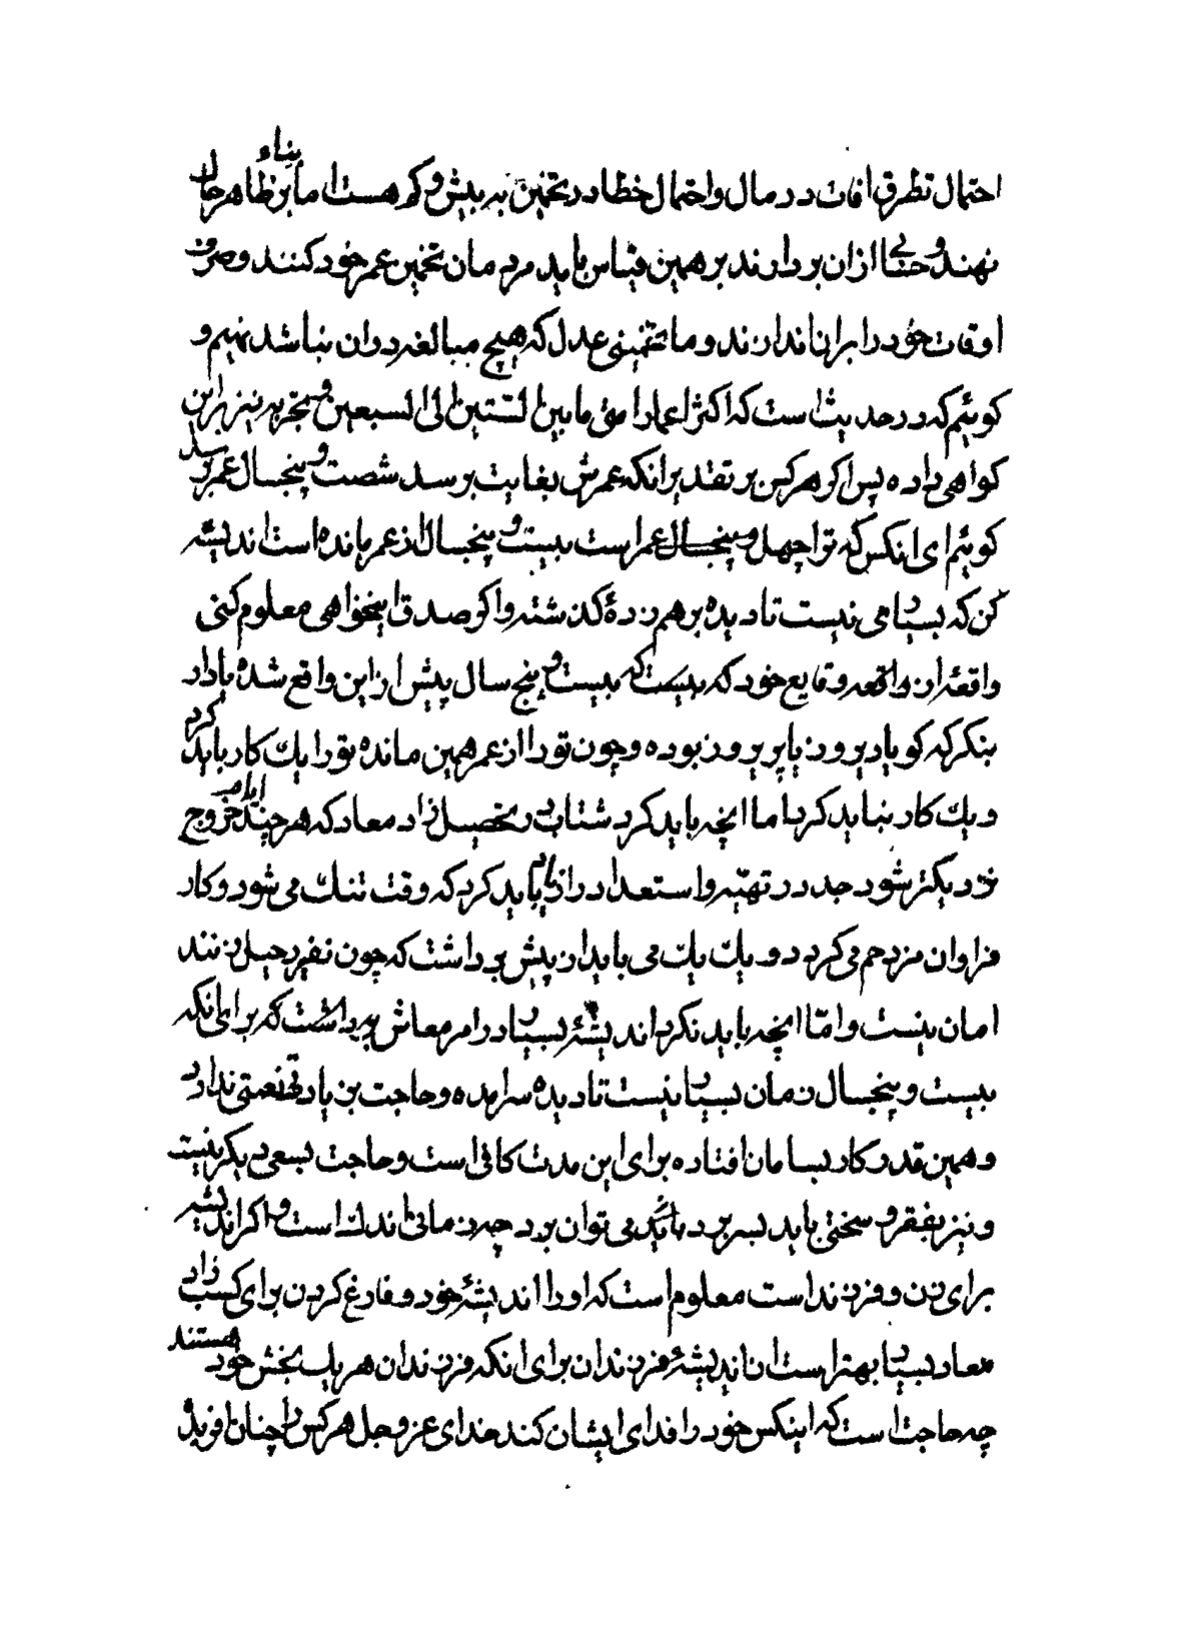 احتمال تطرق افات در مال و احتمال خطا در تخمین به بیش و کم هست اما بناء بر ظاهر حال
نهند و حسابی ازان بردارند بر همین قیاس باید مردمان تخمین عمر خود کنند و صرف
اوقات خود را بران اندازند و ما تخمینی عدل که هیچ مبالغه دران نباشد نهیم و
کوئیم که در حدیث است که اکثر اعمار امتی ما بین الستین الی السبعین و تجربه نیز براین
کواهی داده پس اکر هر کس بر تقدیر انکه عمرش بغایت برسد شصت و پنجسال عمر برسد
کوئیم ای انکس که ترا چهل سال عمر است بیست و پنجسال از عمر مانده است اندیشه
کن که بسیاری نیست تا دیده بر هم زدهٔ کذشته و اکر صدق اینخواهی معلوم کنی
واقعهٔ از وقایع خود که بیست و پنج سال پیش ازاین واقع شده یاد ار
بنکر که کویا دیروز یا پریروز بوده و چون تو را از عمر همین مانده تو را یک کار باید کرد
و یک کار نباید کرد اما انچه باید کرد شتاب در تحصیل زاد معاد که هر چند ایام خروج
نزدیکتر شود جد در تهیه و استعداد را زیاد باید کرد که وقت تنک می شود و کار
فراوان مزدحم می کردد و یک یک می باید از پیش برداشت که چون نفیر رحیل زنند
امان نیست و امّا انچه باید نکرد اندیشهٔ بسیار در امر معاش برداشت که برای انکه
بیست و پنجسال زمان بسیار نیست تا دیده سرامده و حاجت بزیادتی نعمتی نداری
و همین قدر کار بسامان افتاده برای این مدت کافی است و حاجت بسعی دیکر نیست
و نیز بفقر و سختی باید بسر برد می توان برد چه زمانی اندک است و اکر اندیشه
برای زن و فرزند است معلوم است که او را اندیشهٔ خود و فارغ کردن برای کسب زاد
معاد بسیار بهتر است از اندیشهٔ فرزندان برای انکه فرزندان هر یک بخش خود هستند
چه حاجت است که اینکس خود را فدای ایشان کند خدای عز و جل هر کس را چنان افریده